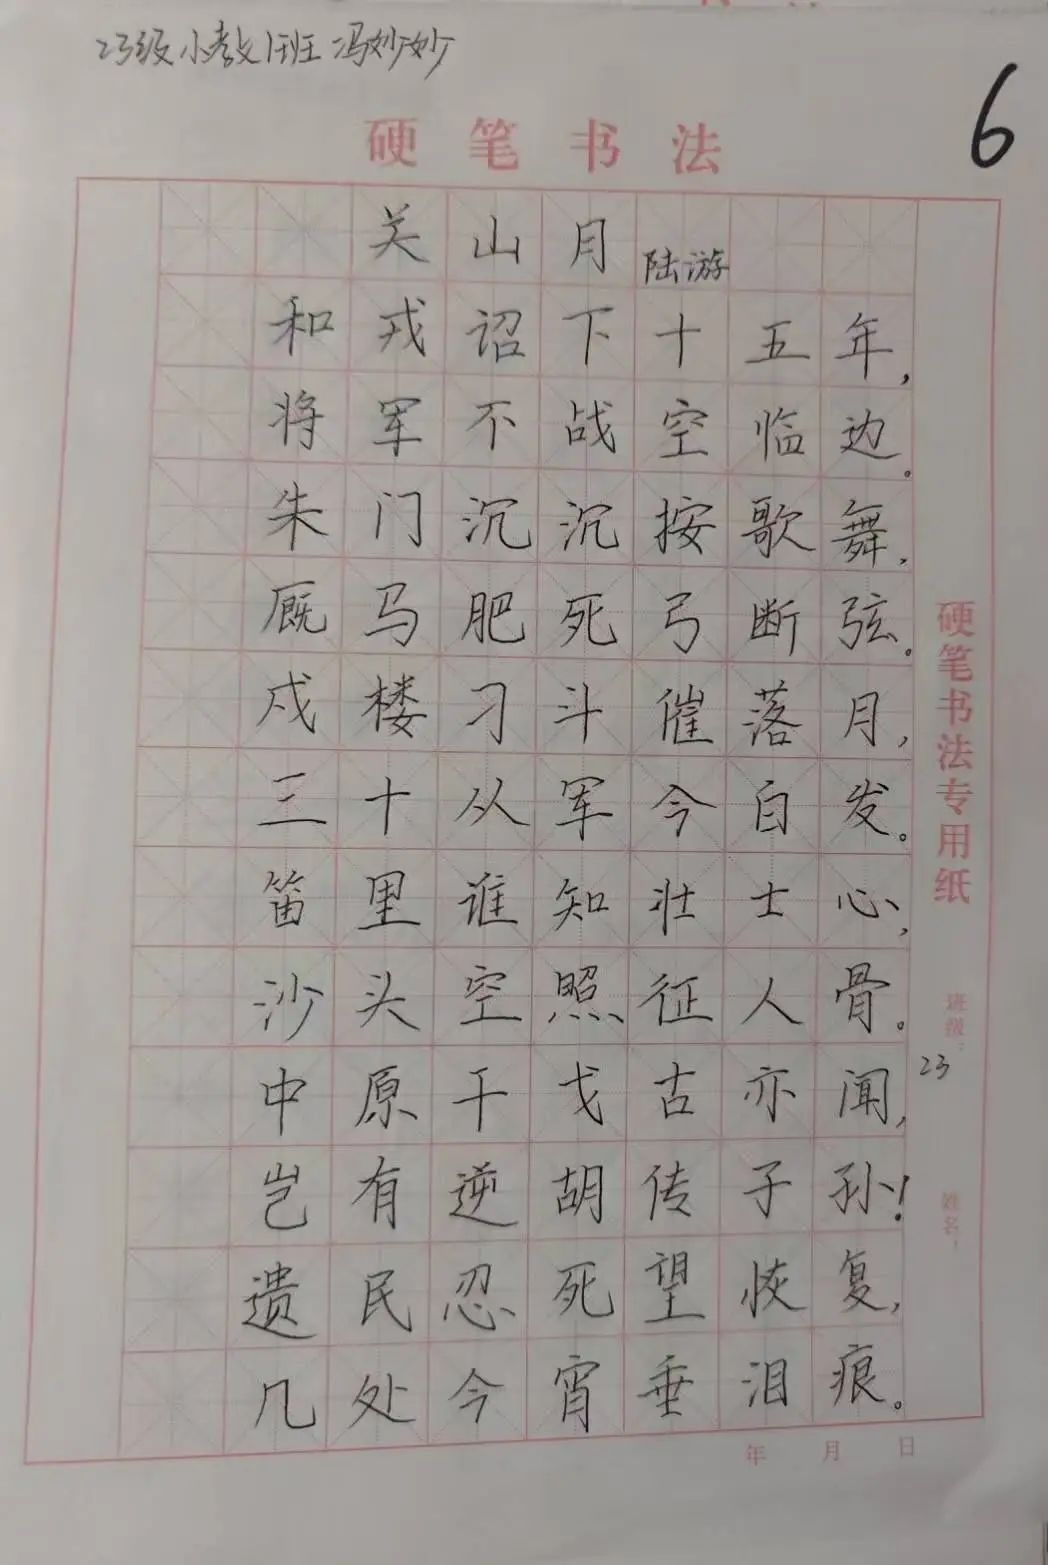 23级小教1班 冯妙妙
6
硬笔书法
关山月 陆游
和戎诏下十五年,
将军不战空临边。
朱门沉沉按歌舞,
厩马肥死弓断弦。
戍楼刁斗催落月,
三十从军今白发。
笛里谁知壮士心,
沙头空照征人骨。
中原干戈古亦闻,
岂有逆胡传子孙!
遗民忍死望恢复,
几处今宵垂泪痕。
硬笔书法专用纸
班级:
23
姓名:
年 月 日